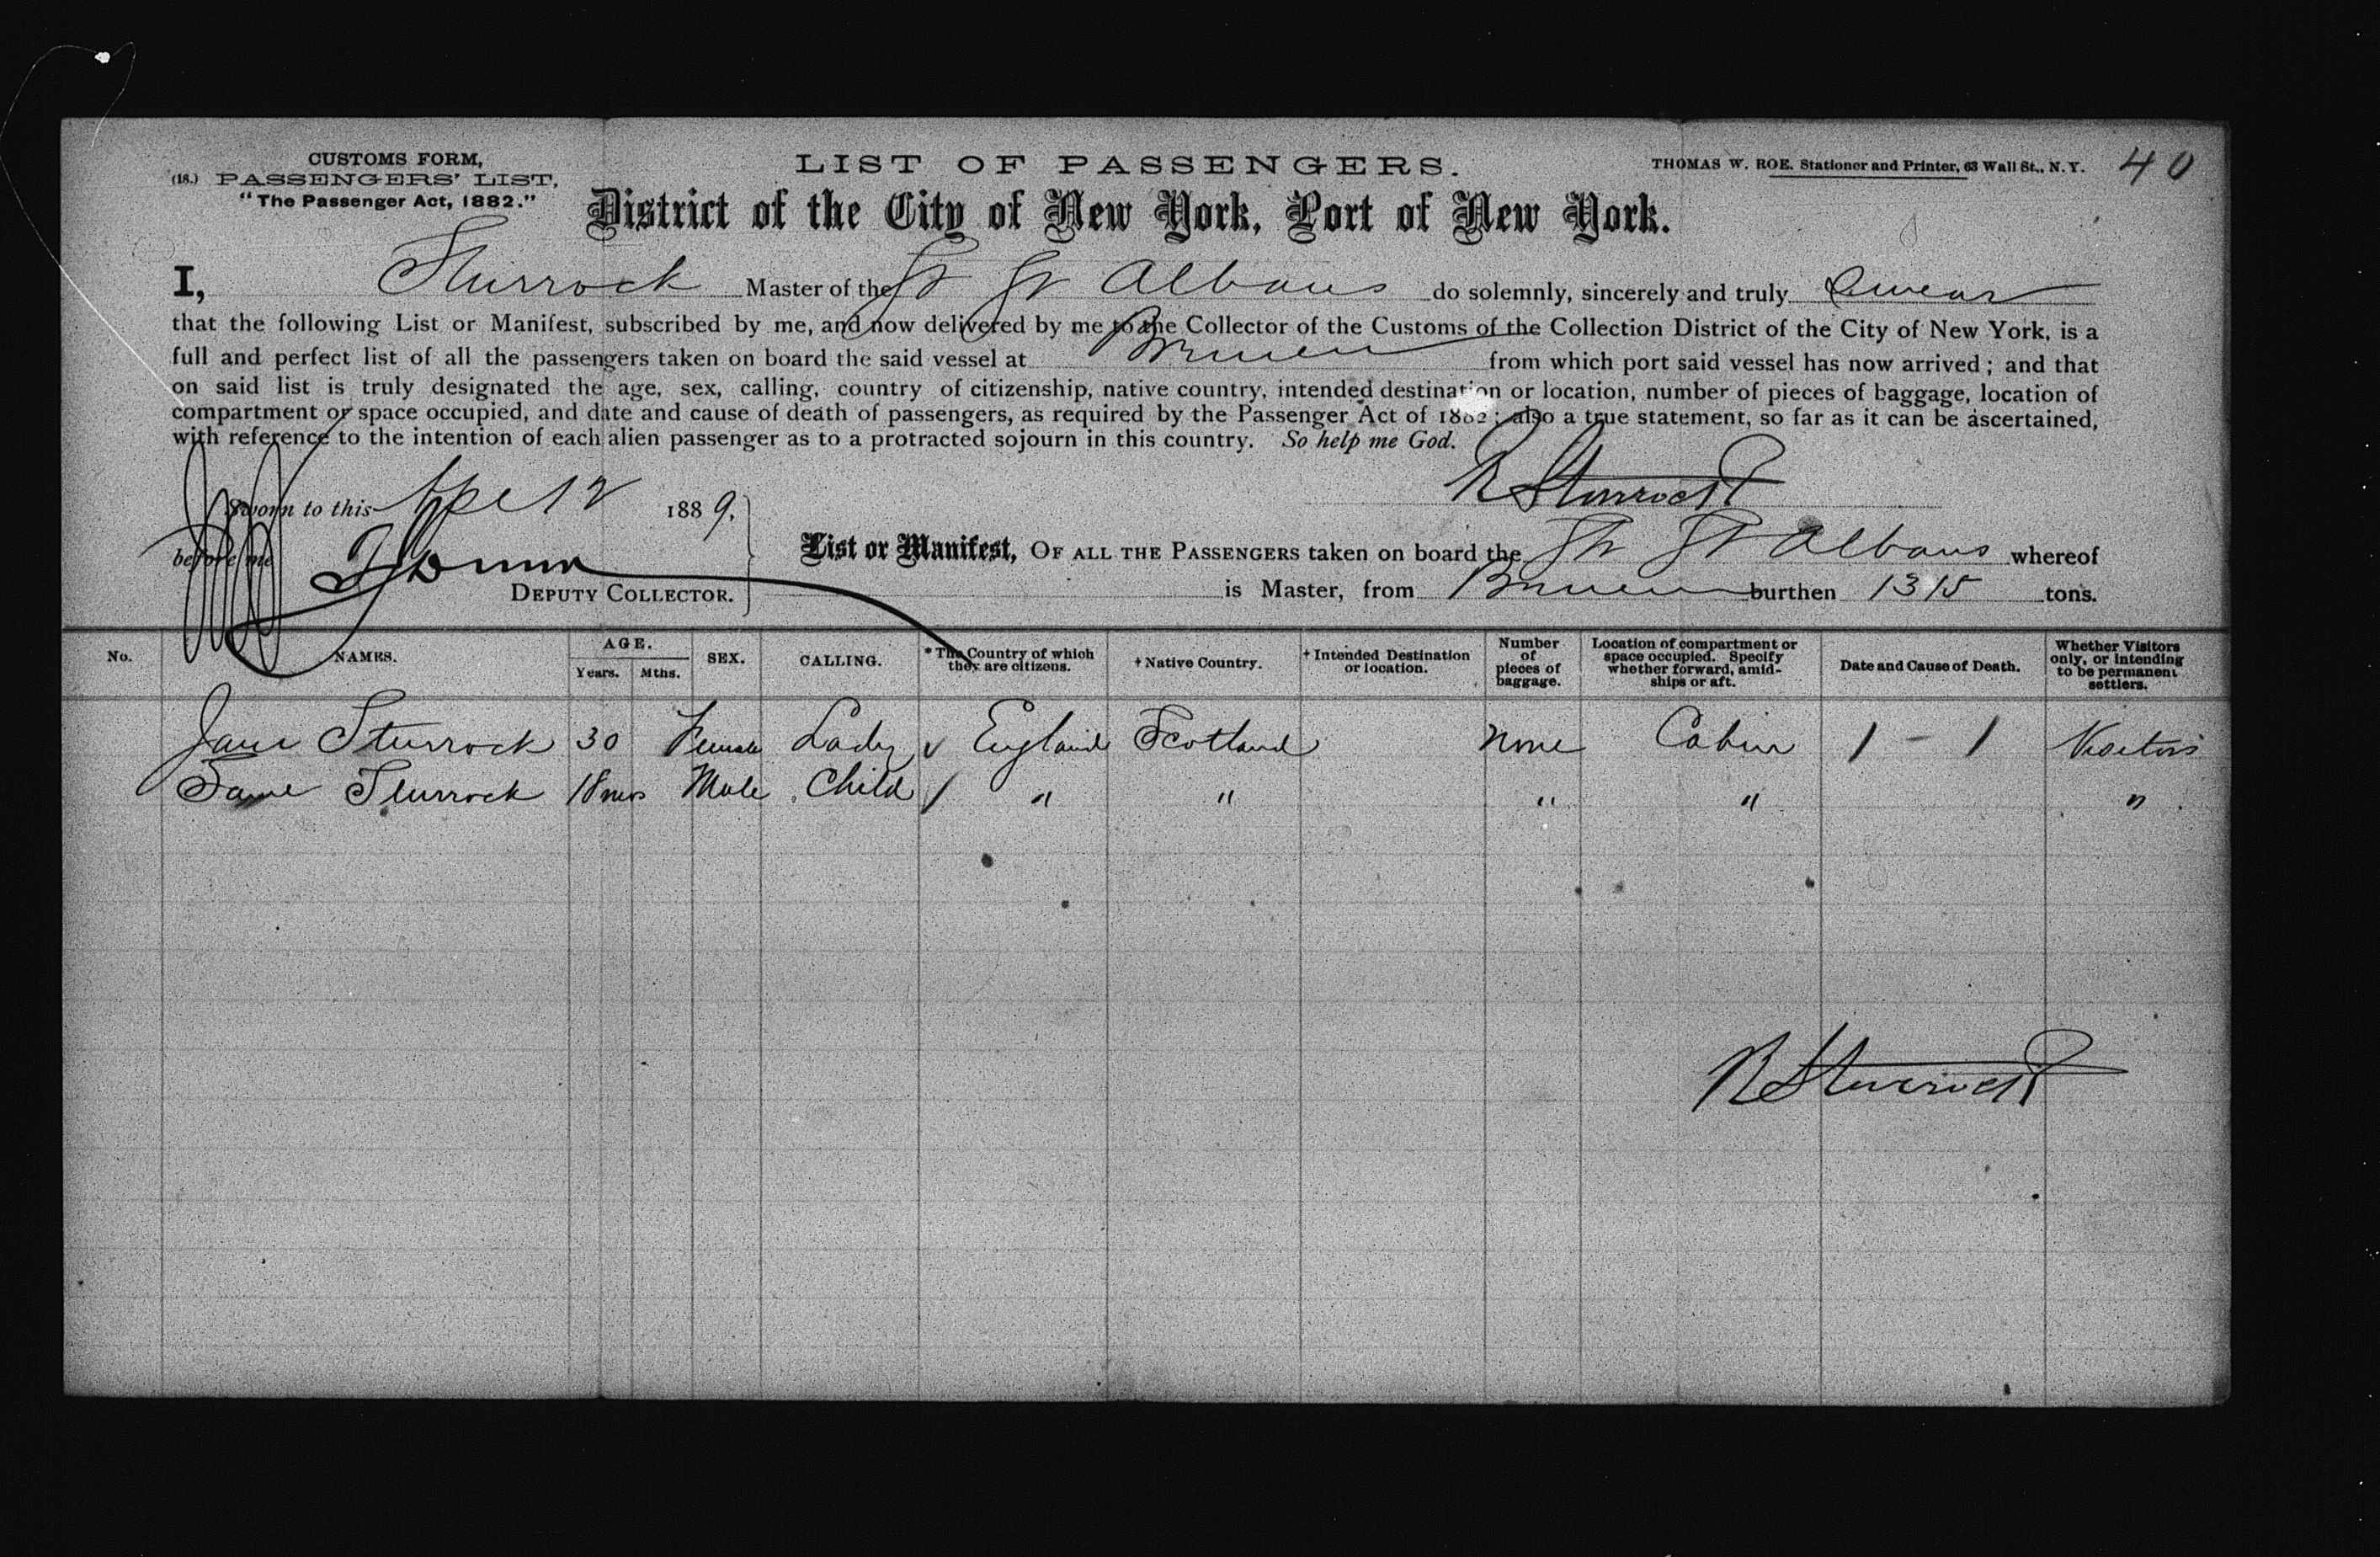 CUSTOMS FORM,
(18.) PASSENGERS' LIST,
"The Passenger Act, 1882."
LIST OF PASSENGERS.
THOMAS W. ROE. Stationer and Printer, 63 Wall St., N. Y.
40
District of the City of New York, Port of New York.
I, Sturrock Master of the Sh St Albans do solemnly, sincerely and truly Swear
that the following List or Manifest, subscribed by me, and now delivered by me to the Collector of the Customs of the Collection District of the City of New York, is a
full and perfect list of all the passengers taken on board the said vessel at Bremen from which port said vessel has now arrived; and that
on said list is truly designated the age, sex, calling, country of citizenship, native country, intended destination or location, number of pieces of baggage, location of
compartment or space occupied, and date and cause of death of passengers, as required by the Passenger Act of 1882; also a true statement, so far as it can be ascertained,
with reference to the intention of each alien passenger as to a protracted sojourn in this country. So help me God.
R Sturrock
Sworn to this Apl 12 1889.
before me
DEPUTY COLLECTOR.
List or Manifest, OF ALL THE PASSENGERS taken on board the Sh St Albans whereof
is Master, from Bremen burthen 1315 tons.
No. NAMES. AGE. Years. Mths. SEX. CALLING. * The Country of which they are citizens. † Native Country. † Intended Destination or location. Number of pieces of baggage. Location of compartment or space occupied. Specify whether forward, amidships or aft. Date and Cause of Death. Whether Visitors only, or intending to be permanent settlers.
Jane Sturrock 30 Female Lady England Scotland None Cabin / - / Visitors
Sturrock 18 mos Male Child / " " " " "
R Sturrock